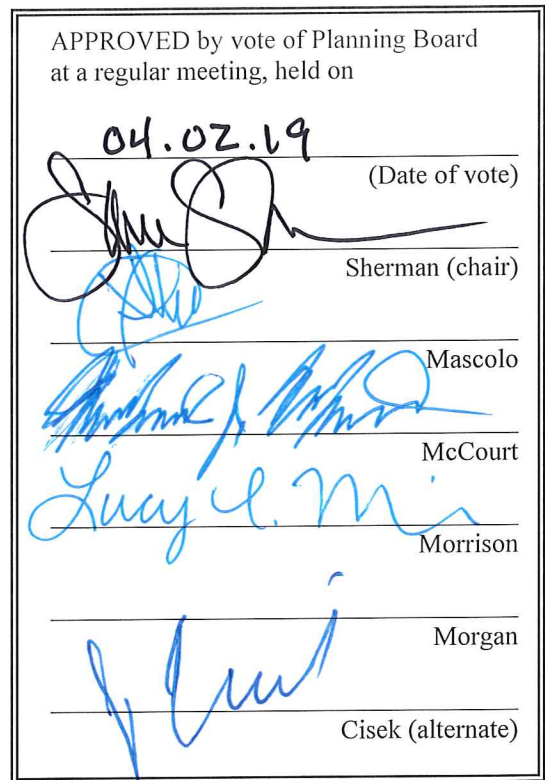 APPROVED by vote of Planning Board
at a regular meeting, held on
04.02.19
(Date of vote)
Sherman (chair)
Mascolo
McCourt
Lucy
Morrison
Morgan
Cisek (alternate)